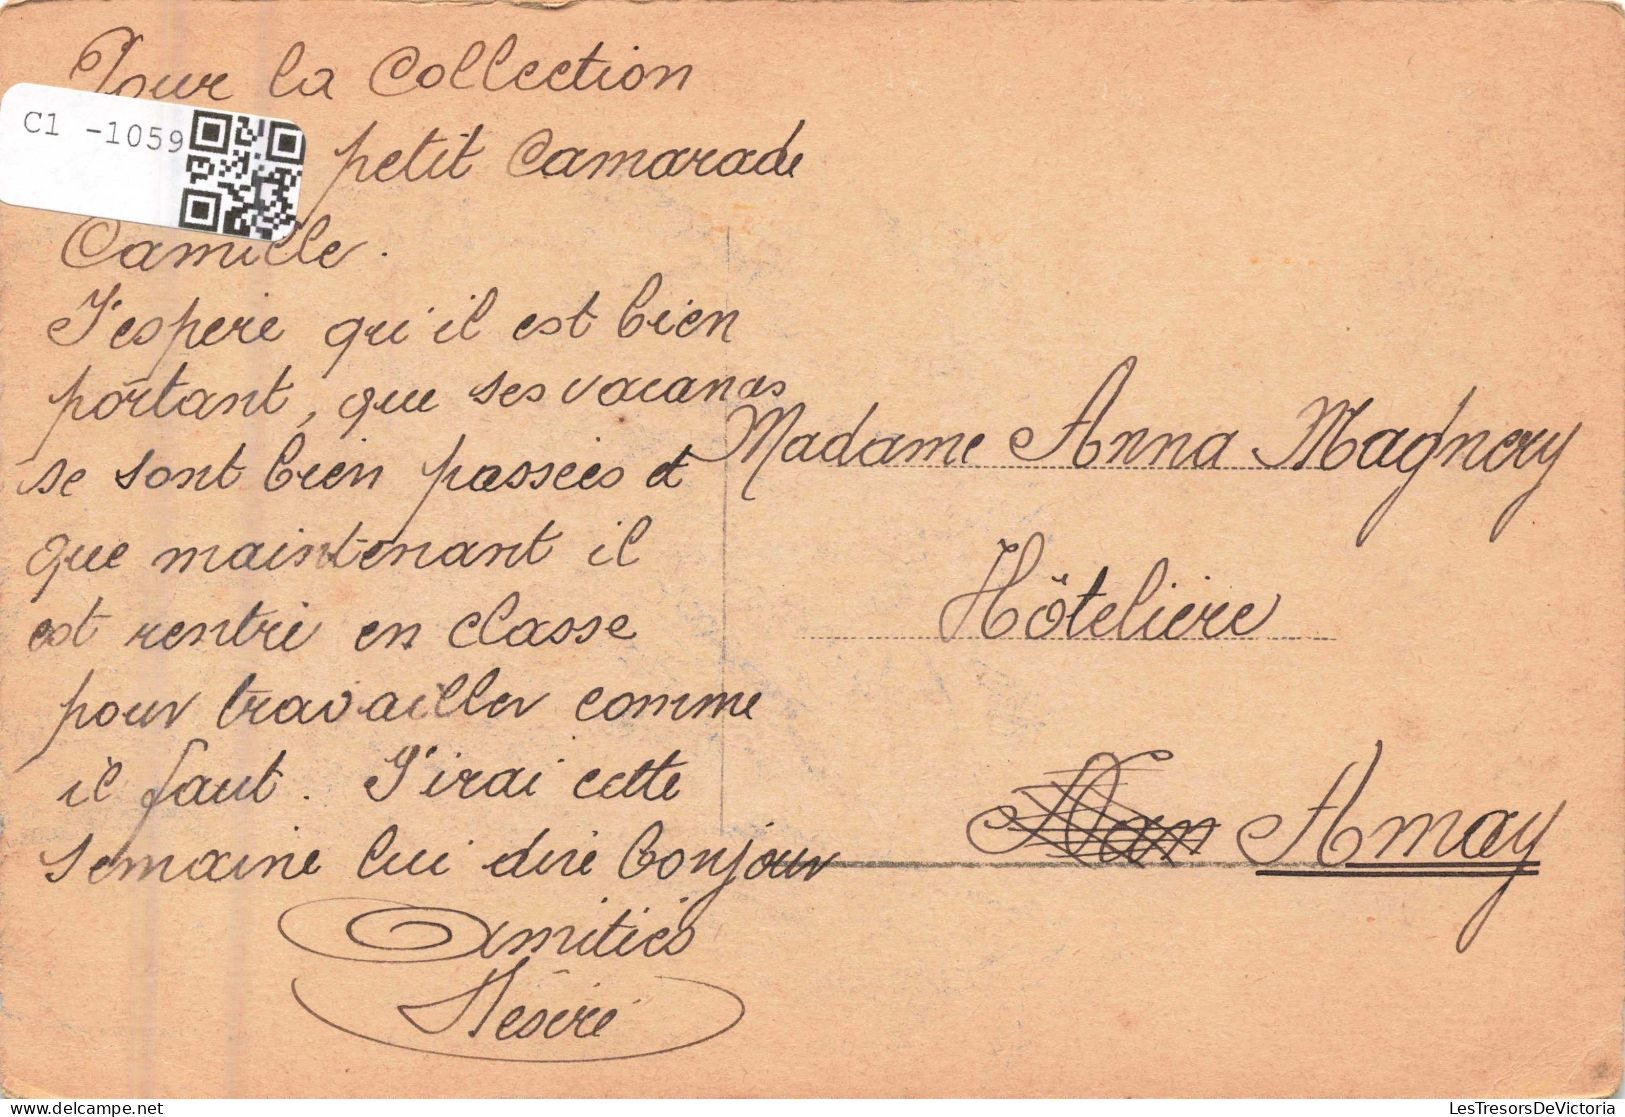 Pour la Collection
C1 -1059
petit Camarade
Camille.
J'espere qu'il est bien
portant, que ses vacances
se sont bien passées et
que maintenant il
est rentré en classe
pour travailler comme
il faut. J'irai cette
semaine lui dire bonjour
Amitiés
Désiré
Madame Anna Magnery
Hôteliere
Amay
LesTresorsDeVictoria.com